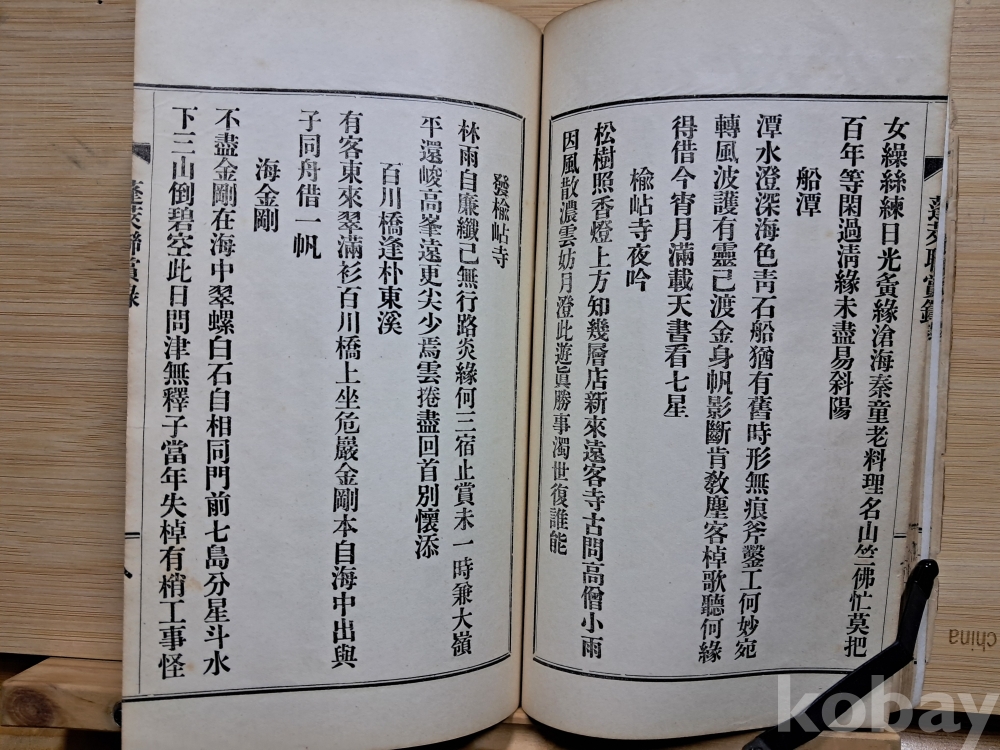 女繰絲練日光夤緣滄海秦童老料理名山竺佛忙莫把
百年等閑過淸緣未盡易斜陽
船潭
潭水澄深海色靑石船猶有舊時形無痕斧鑿工何妙宛
轉風波護有靈已渡金身帆影斷肯敎塵客棹歌聽何緣
得借今宵月滿載天書看七星
楡岾寺夜吟
松樹照香燈上方知幾層店新來遠客寺古問高僧小雨
因風散濃雲妨月澄此遊眞勝事濁世復誰能
蓬萊聯賞錄
發楡岾寺
林雨自廉纖已無行路炎緣何三宿止賞未一時兼大嶺
平還峻高峯遠更尖少焉雲捲盡回首別懷添
百川橋逢朴東溪
有客東來翠滿衫百川橋上坐危巖金剛本自海中出與
子同舟借一帆
海金剛
不盡金剛在海中翠螺白石自相同門前七島分星斗水
下三山倒碧空此日問津無釋子當年失棹有梢工事怪
蓬萊聯賞錄
china
kobay